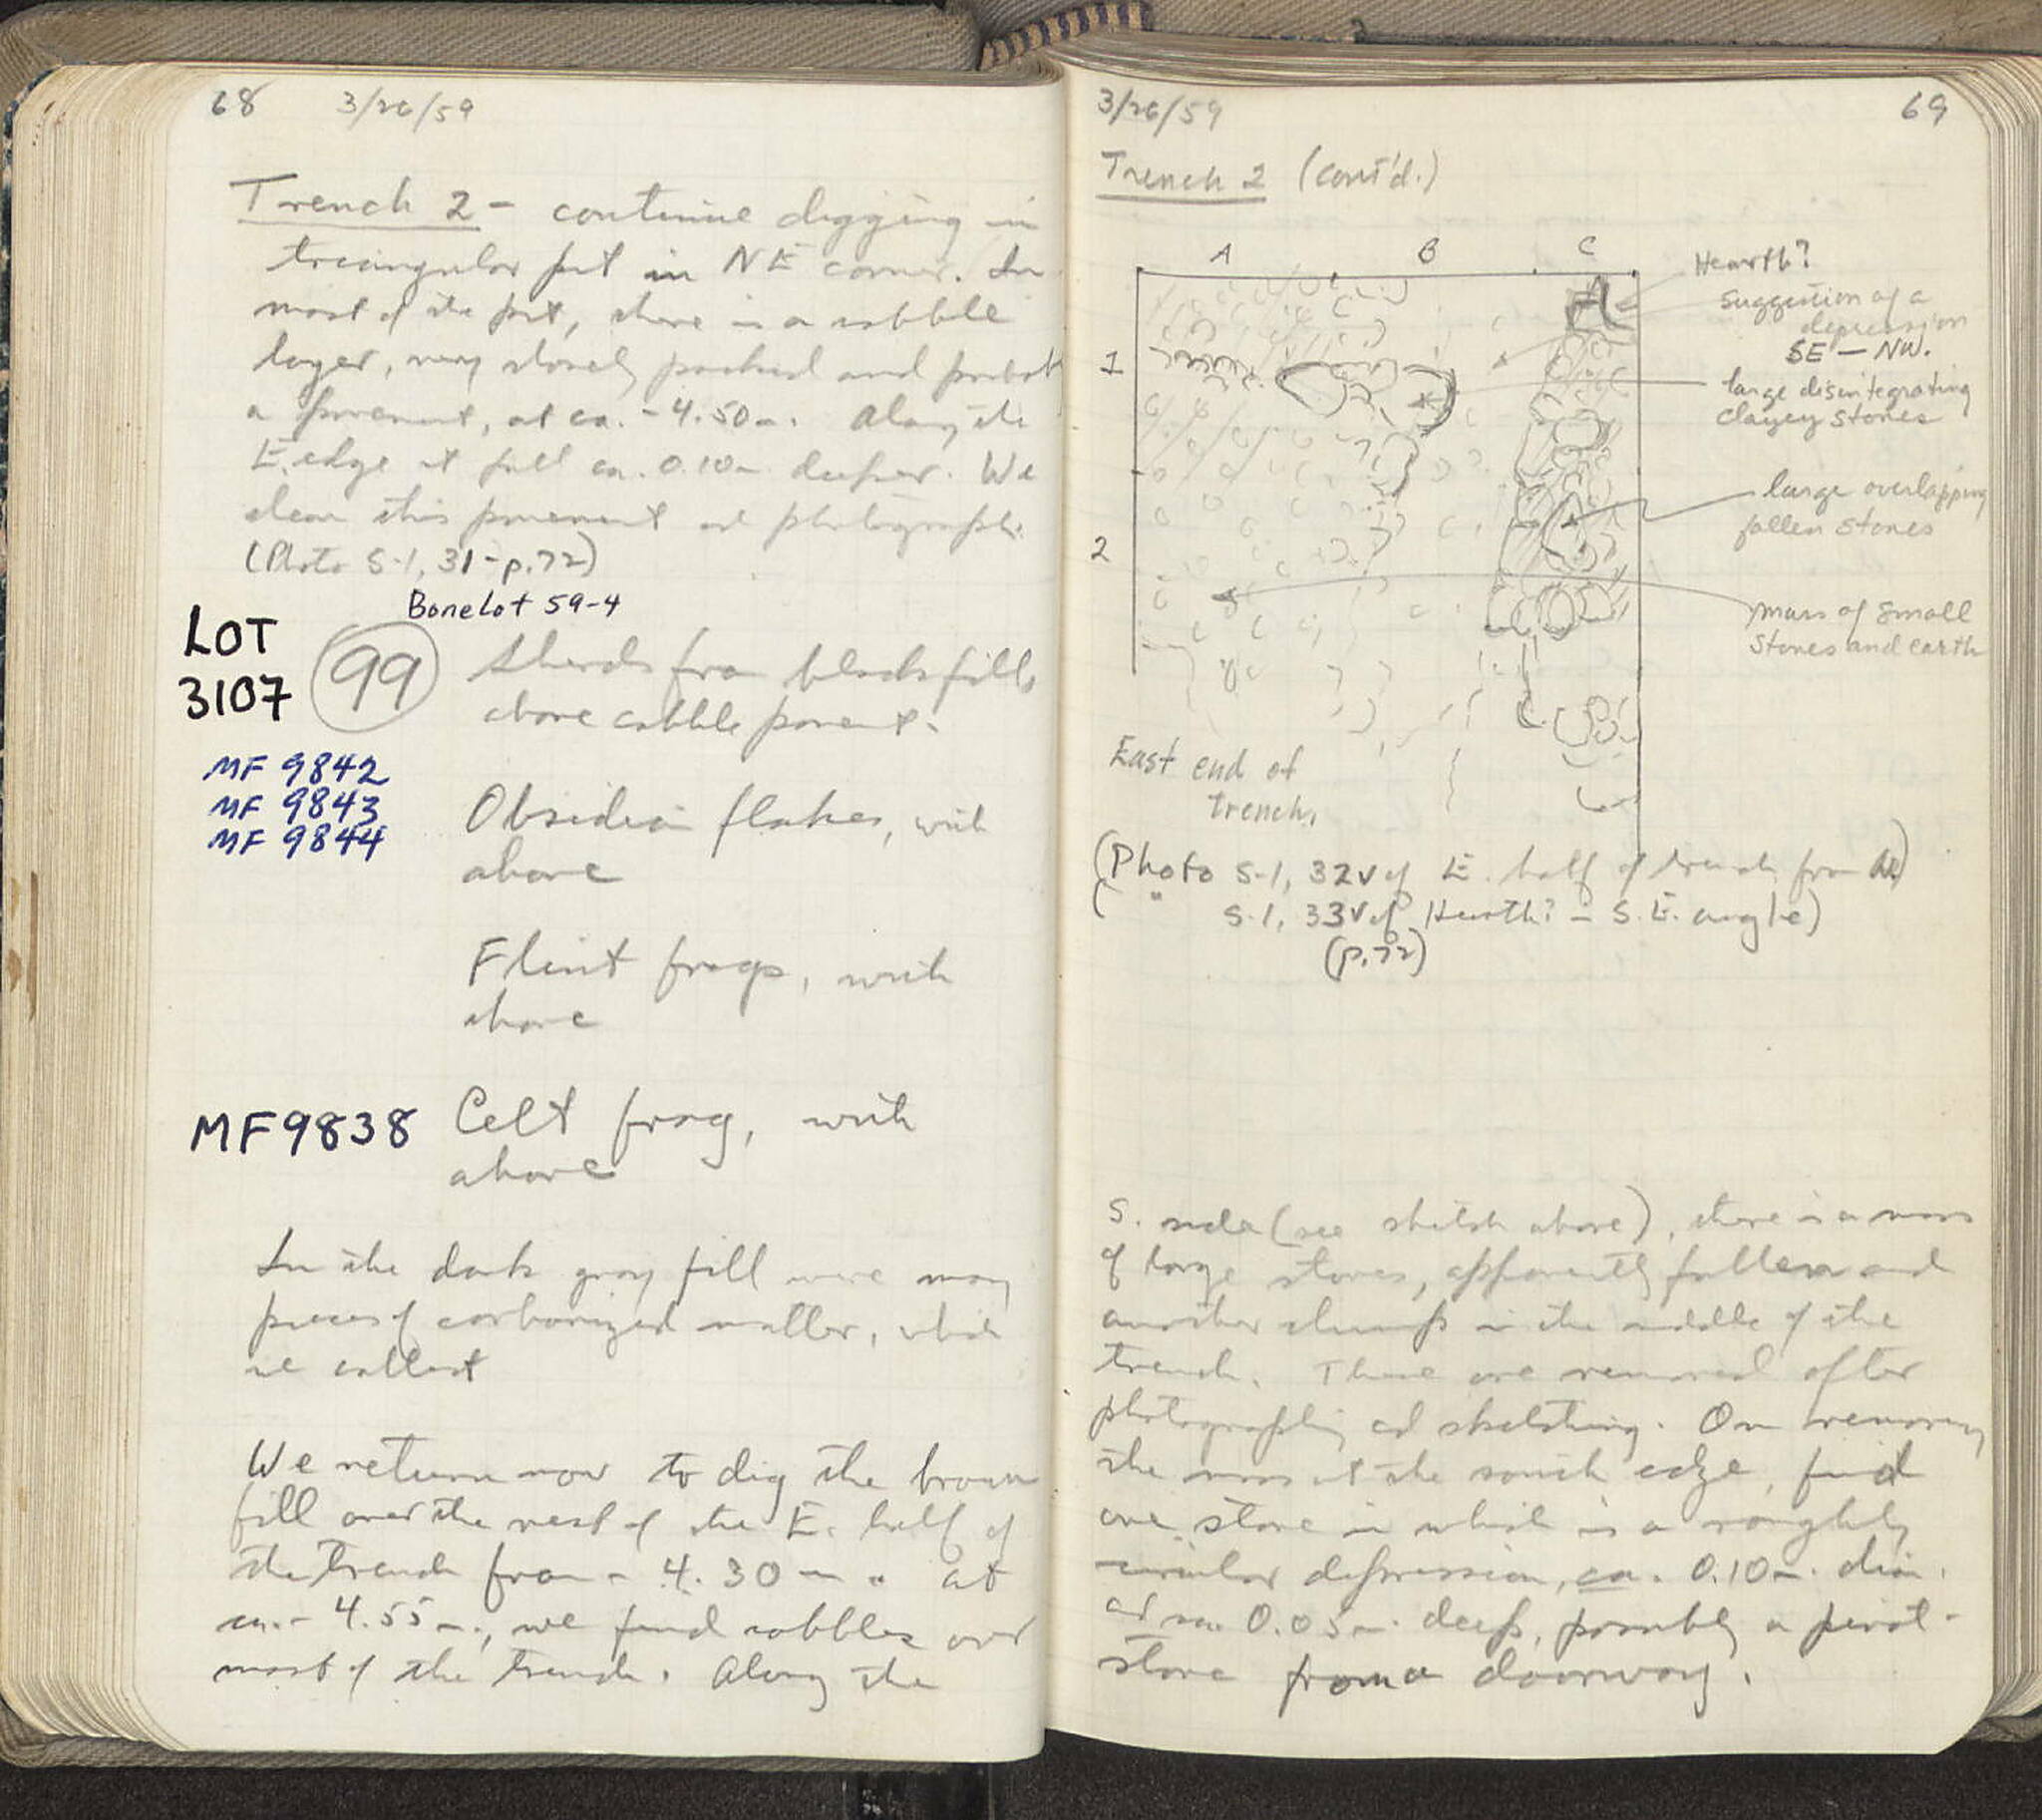 68 3/26/59
Trench 2 - continue digging in
triangular pit in NE corner. In
most of the pit, there is a cobble
layer, very closely packed and probably
a pavement, at ca. -4.50m. Along the
E. edge it fell ca. 0.10m deeper. We
clean this pavement and photograph.
(Photo S-1, 31 - p.72)
Bone Lot 59-4
LOT
3107
99
Sherds from black fill
above cobble pavement.
MF 9842
MF 9843
MF 9844
Obsidian flakes, with
above
Flint frags, with
above
MF9838
Celt frag, with
above
In the dark gray fill were many
pieces of carbonized matter, which
we collect
We return now to dig the brown
fill over the rest of the E. half of
the trench from - 4.30 m. at
ca. - 4.55m., we find cobbles over
most of the trench. Along the
3/26/59 69
Trench 2 (cont'd.)
A B C
1
2
Hearth?
Suggestion of a
depression
SE - NW.
large disintegrating
clayey stones
large overlapping
fallen stones
mass of small
stones and earth
East end of
trench.
(Photo S-1, 32 v of E. half of trench from W)
( " S-1, 33 v of Hearth? - S.E. angle)
(p.72)
S. side (see sketch above), there is a mass
of large stones, apparently fallen and
another clump in the middle of the
trench. These are removed after
photographing and sketching. On removing
the mass at the south edge, find
one stone in which is a roughly
circular depression, ca. 0.10m. diam.
and ca. 0.05m. deep, possibly a pivot-
stone from a doorway.